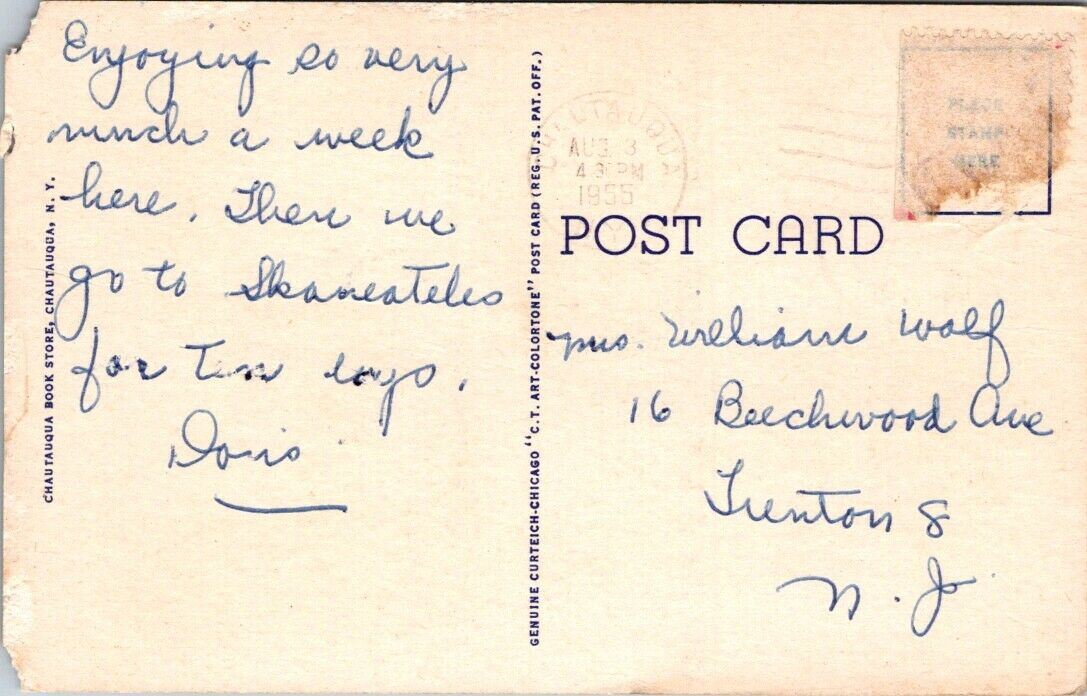 Enjoying so very
much a week
here. Then we
go to Skaneateles
for Ten days.
Doris
CHAUTAUQUA BOOK STORE, CHAUTAUQUA, N. Y.
GENUINE CURTEICH-CHICAGO "C.T. ART-COLORTONE" POST CARD (REG. U.S. PAT. OFF.)
CHAUTAUQUA
AUG 3
4 30 PM
1955
N.Y.
PLACE
STAMP
HERE
POST CARD
Mrs. William Wolf
16 Beechwood Ave
Trenton 8
N. J.